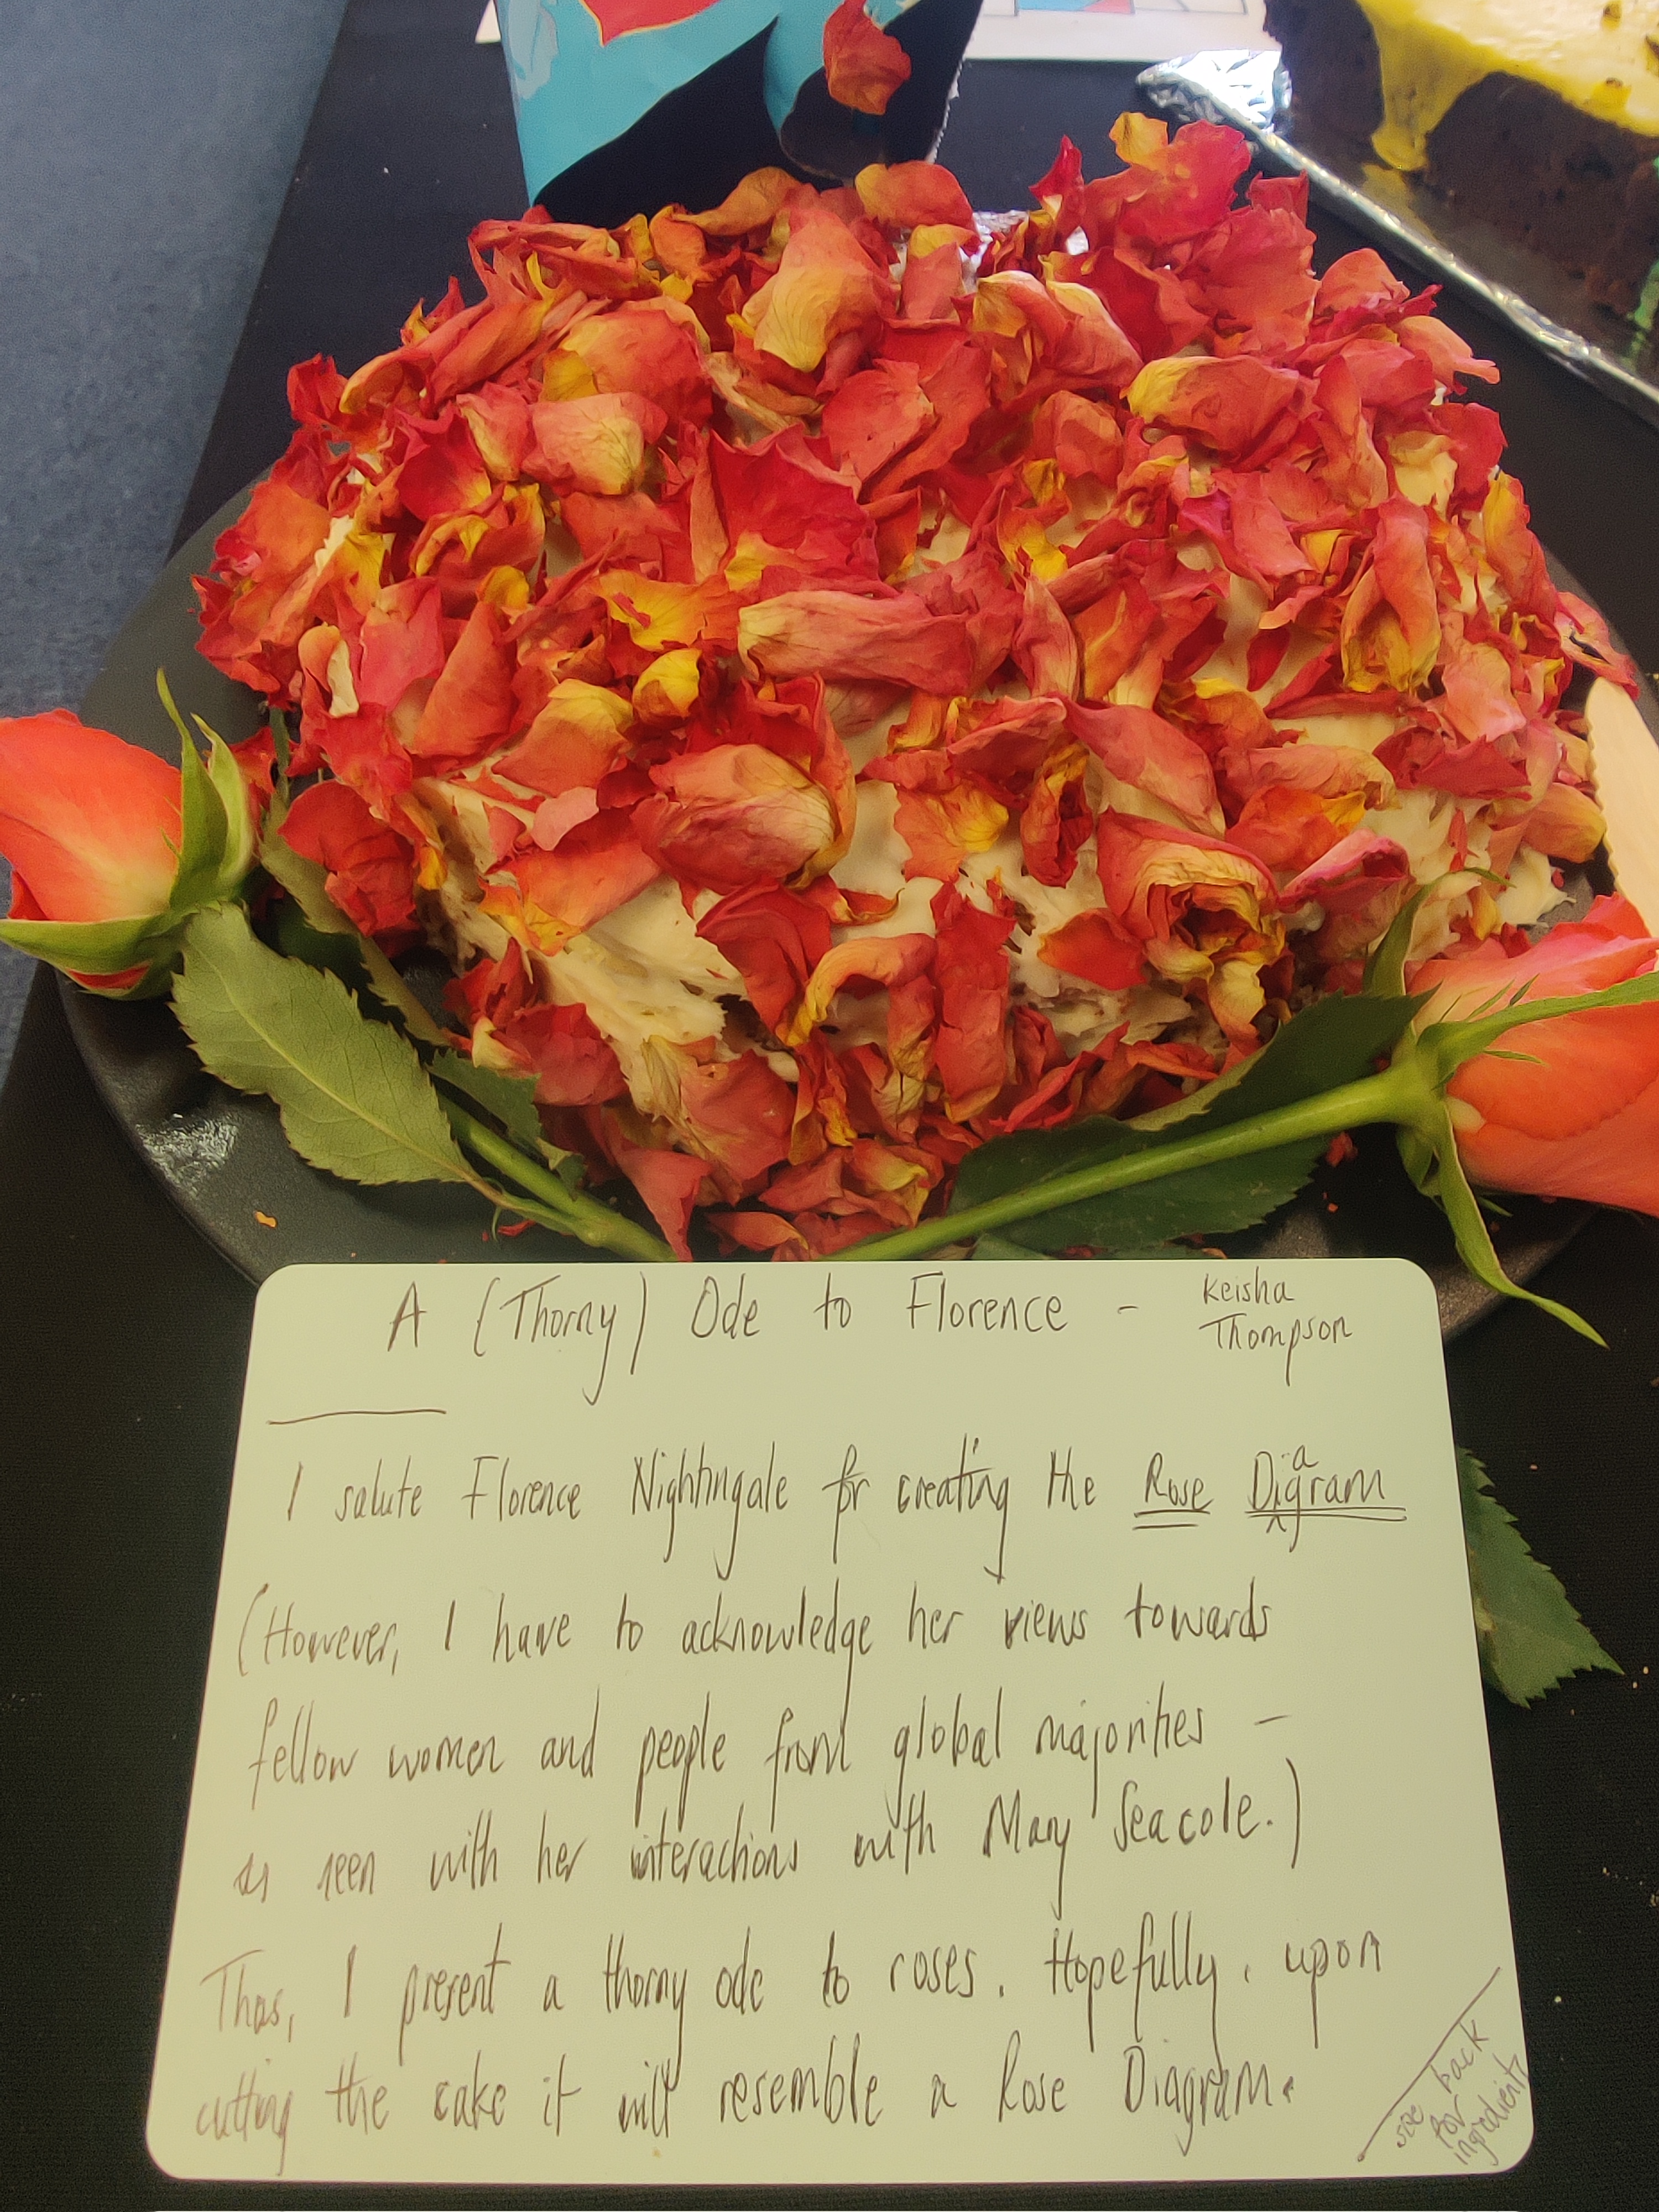 A (Thorny) Ode to Florence - Keisha
Thompson
I salute Florence Nightingale for creating the Rose Diagram
(However, I have to acknowledge her views towards
fellow women and people from global majorities -
as seen with her interactions with Mary Seacole.)
Thus, I present a thorny ode to roses. Hopefully, upon
cutting the cake it will resemble a Rose Diagram.
see back
for
ingredients